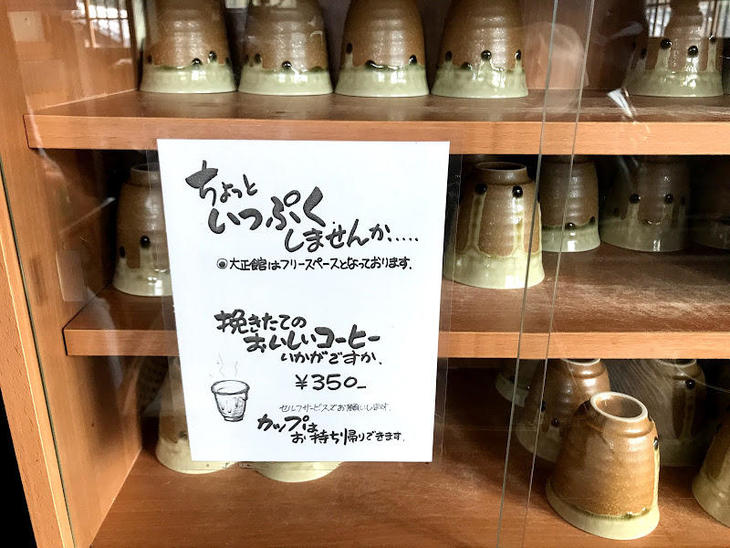 ちょっと
いっぷく
しませんか.....
◉大正館はフリースペースとなっております。
挽きたての
おいしいコーヒー
いかがですか、
¥350-
セルフサービスでお願いします。
カップは
お持ち帰りできます。